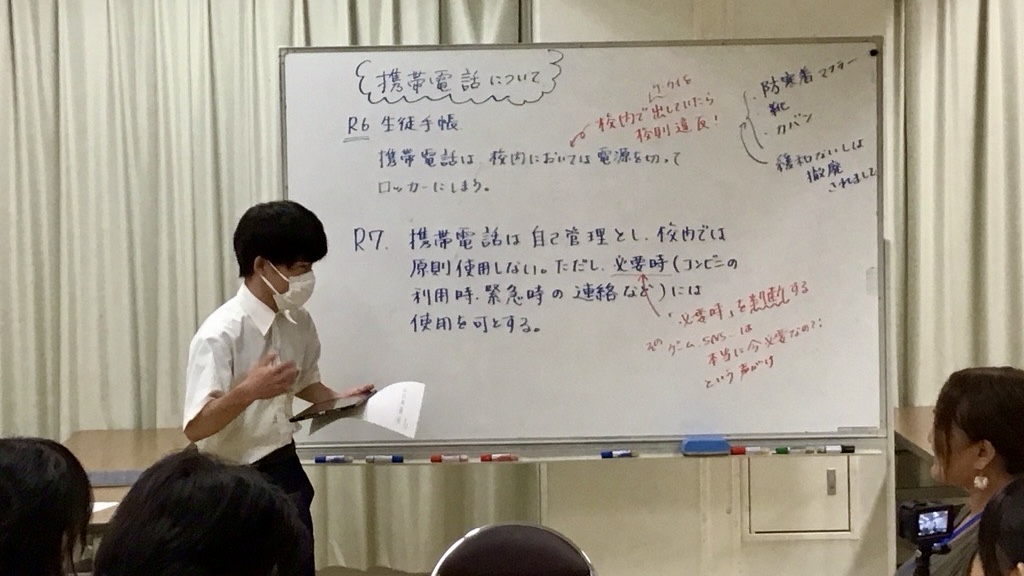 携帯電話について
R6 生徒手帳
携帯電話は 校内においては 電源を切って
ロッカーにしまう。
校内で出していたら
校則違反!
防寒着 マフラー
・靴
・カバン
緩和ないしは
撤廃
されました
R7. 携帯電話は 自己管理とし、校内では
原則使用しない。ただし、必要時(コンビニの
利用時、緊急時の連絡など)には
使用を可とする。
「必要時」を判断する
そのゲーム、SNSは
本当に今必要なの?!
という声がけ